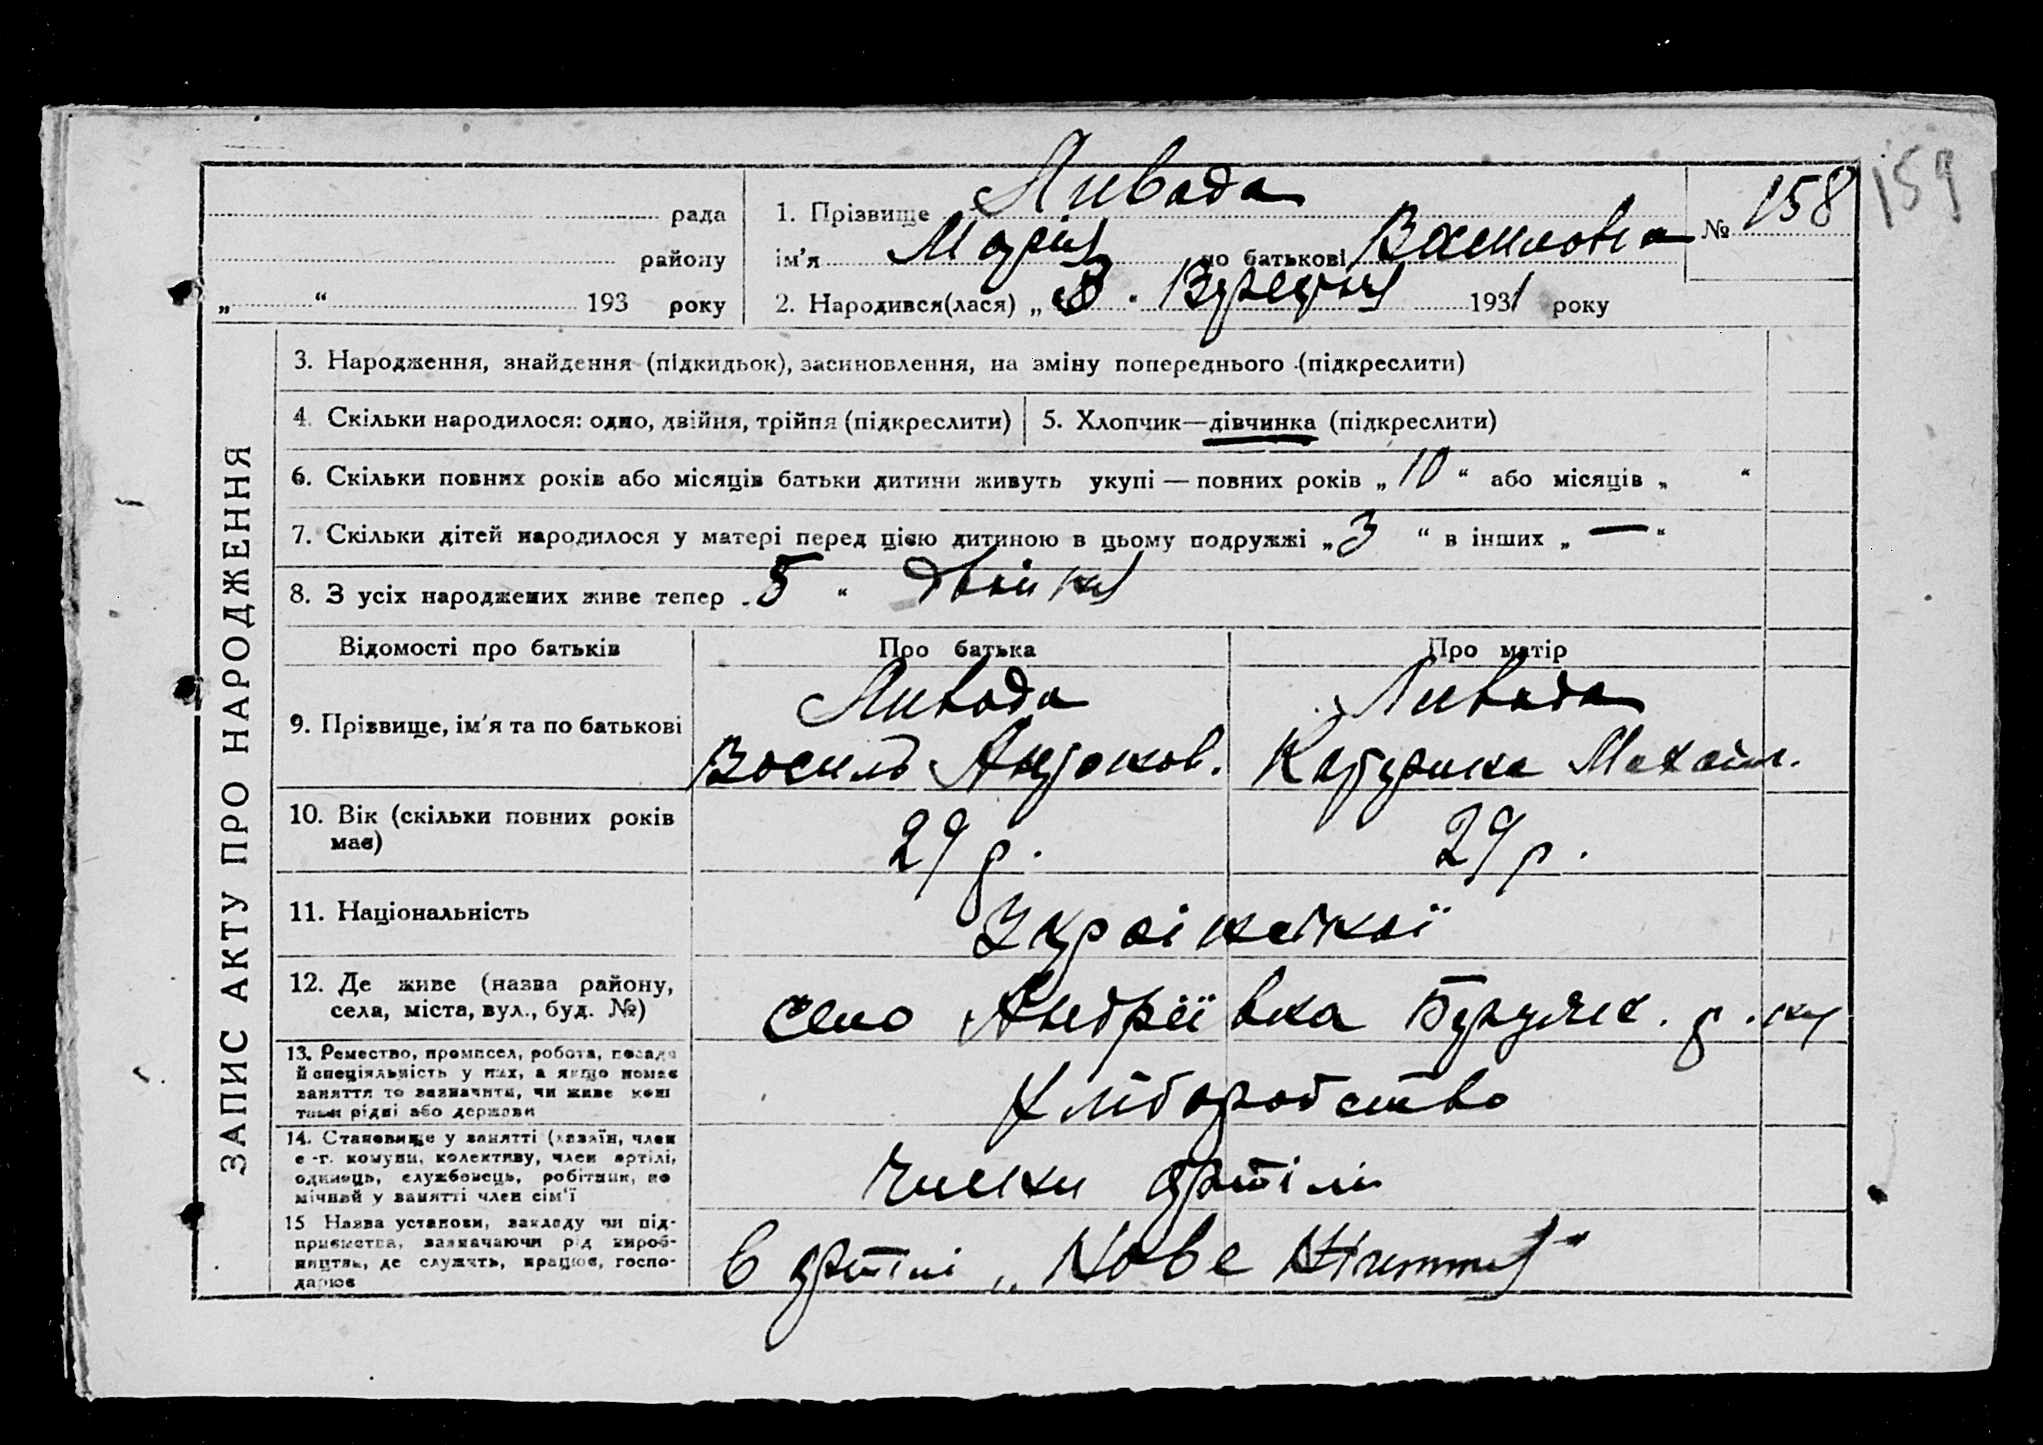 159
рада
району
„ “ 193 року
1. Прізвище Ливада
ім’я Марія по батькові Василовна
№ 158
2. Народився(лася) „ 8 . 1931 року
ЗАПИС АКТУ ПРО НАРОДЖЕННЯ
3. Народження, знайдення (підкидьок), засиновлення, на зміну попереднього (підкреслити)
4. Скільки народилося: одно, двійня, трійня (підкреслити)
5. Хлопчик—дівчинка (підкреслити)
6. Скільки повних років або місяців батьки дитини живуть укупі — повних років „ 10 “ або місяців „ “
7. Скільки дітей народилося у матері перед цією дитиною в цьому подружжі „ 3 “ в інших „ — “
8. З усіх народжених живе тепер „ 5 “ двійня
Відомості про батьків
Про батька
Про матір
9. Прізвище, ім’я та по батькові
Ливада
Василь Андронов.
Ливада
Катерина Михайл.
10. Вік (скільки повних років
має)
29 р.
29 р.
11. Національність
Української
12. Де живе (назва району,
села, міста, вул., буд. №)
село Андріївка р.
13. Ремество, промисел, робота, посада
й спеціяльність у них, а якщо немає
заняття то зазначити, чи живе кошт
тами рідні або держави
Хліборобство
14. Становище у занятті (хазяїн, член
с.-г. комуни, колективу, член артілі,
одинець, службовець, робітник, по
мічний у занятті член сім’ї
Члени артіли
15 Назва установи, закладу чи під-
приємства, зазначаючи рід вироб-
ництва, де служить, працює, госпо-
дарює
в артілі „Нове Життя“